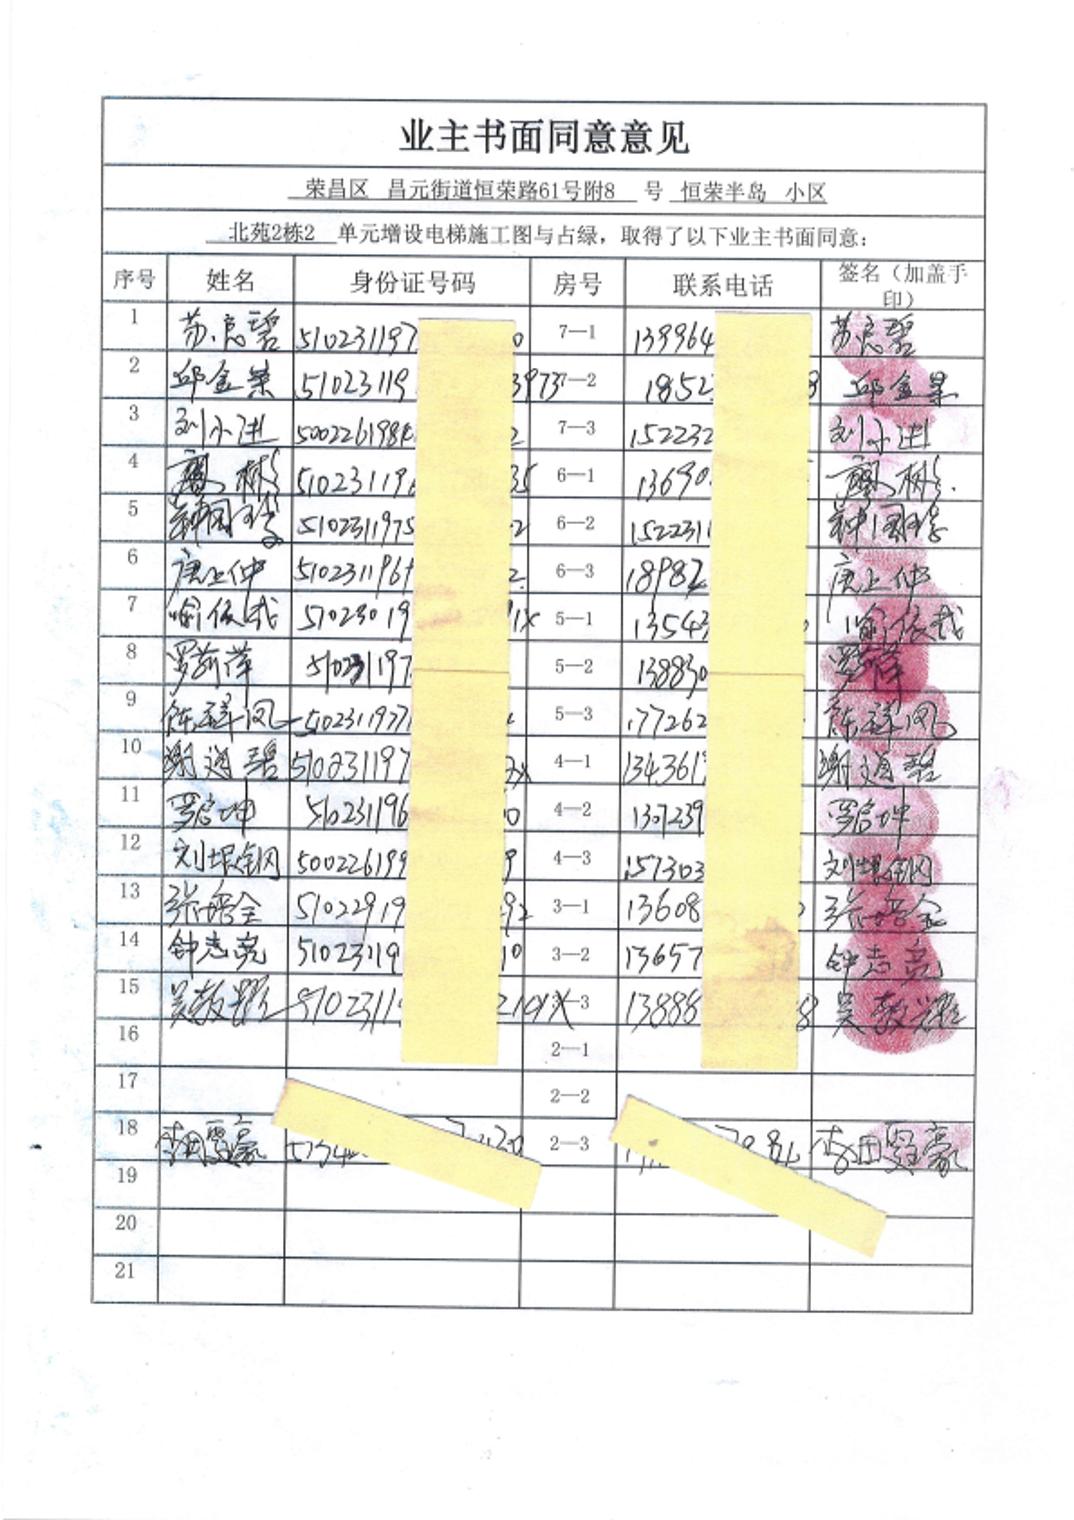 业主书面同意意见
荣昌区 昌元街道恒荣路61号附8 号 恒荣半岛 小区
北苑2栋2 单元增设电梯施工图与占绿，取得了以下业主书面同意：
序号 姓名 身份证号码 房号 联系电话 签名（加盖手印）
1 苏启碧 510231197 0 7—1 139964 苏启碧
2 邱金荣 51023119 3973 7—2 1852 8 邱金荣
3 刘小进 500226198 2 7—3 152232 刘小进
4 51023119 35 6—1 13690
5 5102311975 2 6—2 1522311
6 唐上仲 510231196 2 6—3 18982 唐上仲
7 喻依我 51023019 1X 5—1 13543 喻依我
8 罗莉萍 510231197 5—2 138830 罗萍
9 陈祥凤 5102311977 5—3 177262 陈祥凤
10 谢道碧 510231197 3X 4—1 134361 谢道碧
11 罗启坤 510231196 0 4—2 137239 罗启坤
12 刘垠钢 500226199 9 4—3 157303 刘垠钢
13 张培全 51022919 92 3—1 13608 张培全
14 钟志亮 51023119 10 3—2 13657 钟志亮
15 吴教 5102311 210X —3 13888 8 吴教
16 2—1
17 2—2
18 2—3
19
20
21